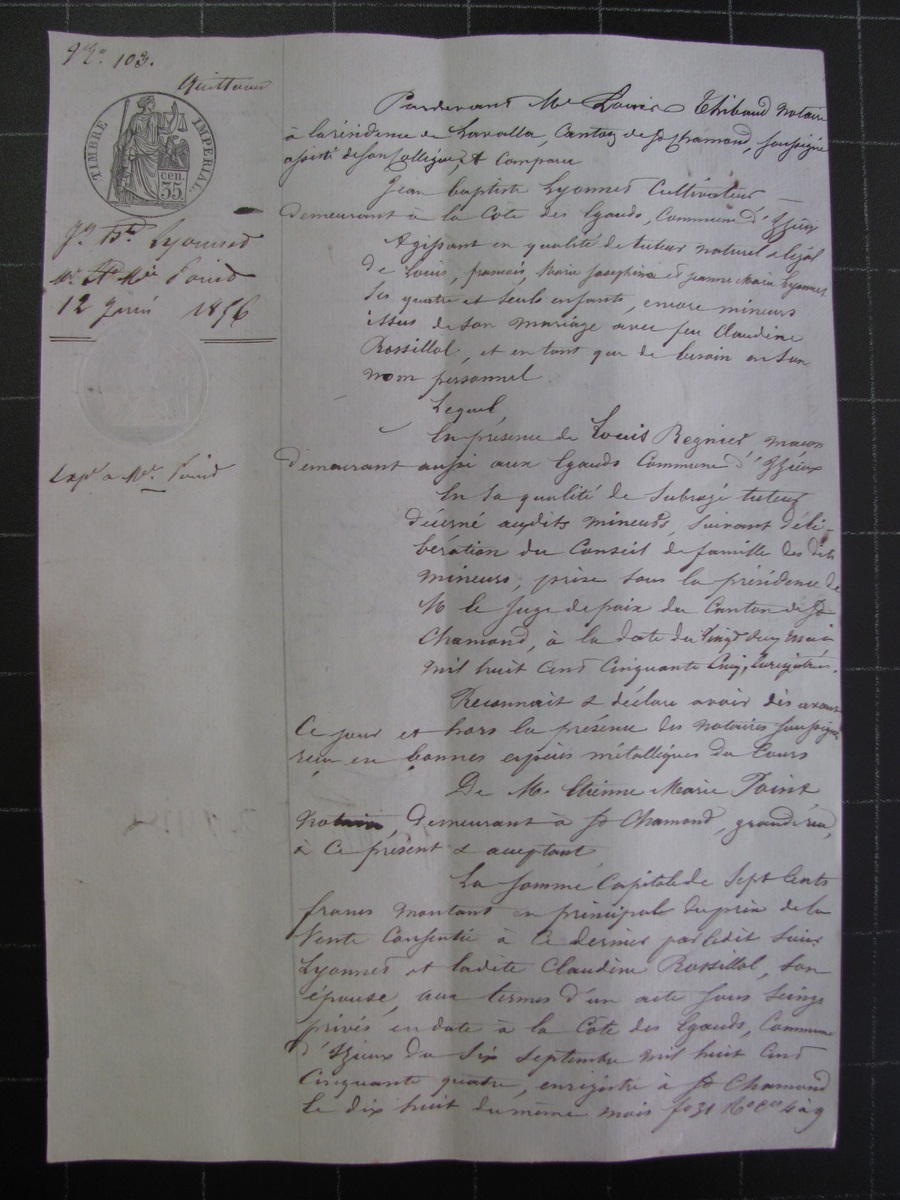 103.
Quittance
TIMBRE IMPERIAL
cen.
35.
Jn Bte Lyonnet
12 Juin 1856
Expn à Me Point
Pardevant Me Louis Thibaud notaire
à la résidence de Lavalla, Canton de St Chamond, soussigné
assisté de son Collègue, A Comparu
Jean baptiste Lyonnet Cultivateur
demeurant à la Côte des Egauds, Commune d'Izieux
Agissant en qualité de tuteur naturel et légal
de Louis, francois, Marie Josephine et Jeanne Marie Lyonnet
ses quatre et seuls enfants, encore mineurs
issus de son mariage avec feu Claudine
Rossillol, et en tant que de besoin en son
nom personnel
Lequel,
En présence de Louis Regnier maçon
demeurant aussi aux Egauds Commune d'Izieux
En sa qualité de Subrogé tuteur
décerné audits mineurs, suivant déli-
bération du Conseil de famille des dits
mineurs, prise sous la présidence de
M le Juge de paix du Canton de St
Chamond, à la date du vingt deux mai
mil huit Cent Cinquante Cinq, Enregistrée.
Reconnait & déclare avoir dès avant
Ce jour et hors la présence des notaires soussignés
reçu en bonnes espèces métalliques du Cours
De Me Etienne Marie Point
notaire, demeurant à St Chamond, grande rue,
à Ce présent & acceptant
La somme Capitale de Sept Cents
francs montant en principal du prix de la
Vente Consentie à Ce dernier par ledit Sieur
Lyonnet et ladite Claudine Rossillol, son
épouse, aux termes d'un acte sous seings
privés en date à la Côte des Egauds, Commune
d'Izieux du Six Septembre mil huit Cent
Cinquante quatre, enregistré à St Chamond
le dix huit du même mois fo 31 Ro Ces 4 à 9